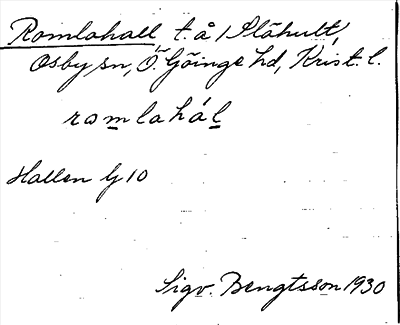 Romlahall t. å / Slähult,
Osby sn, Ö. Göinge hd, Krist. l.
romlahál
Hallen G 10
Sigv. Bengtsson 1930